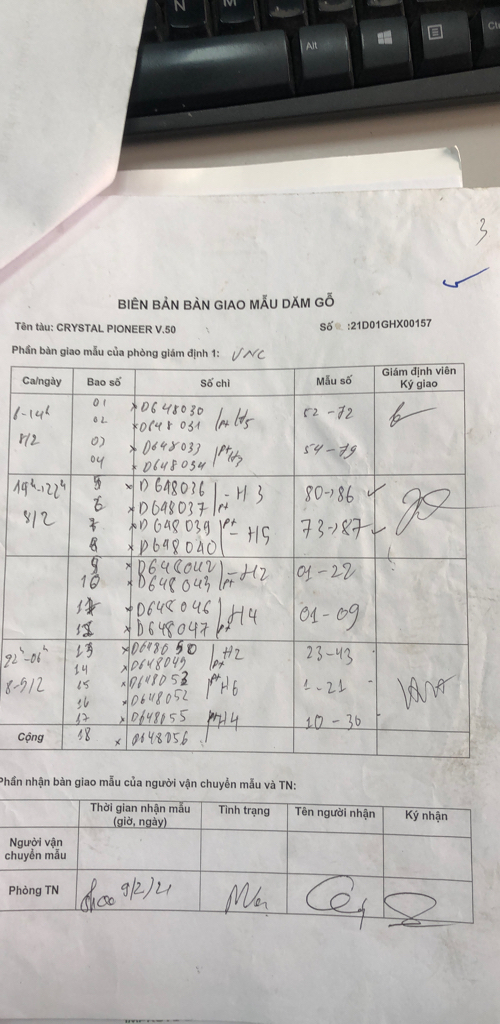 N
M
Alt
3
BIÊN BẢN BÀN GIAO MẪU DĂM GỖ
Tên tàu: CRYSTAL PIONEER V.50 Số :21D01GHX00157
Phần bàn giao mẫu của phòng giám định 1: VNC
Ca/ngày Bao số Số chỉ Mẫu số Giám định viên Ký giao
6-14h 01 xD648030 52-72
02 xD648031 H5
8/2 03 xD648033 54-79
04 xD648034 H3
14h-22h 5 xD648036 - H3 80->86 ✓
8/2 6 xD648037
7 xD648039 - H5 73->87 ✓
8 xD648040
9 xD648042 - H2 01-22
10 xD648043
11 xD648046 H4 01-09
12 xD648047
22h-06h 13 xD648050 H2 23-43
8-9/2 14 xD648049
15 xD648053 H6 1-21
16 xD648052
17 xD648055 H4 10-30
Cộng 18 x D648056
Phần nhận bàn giao mẫu của người vận chuyển mẫu và TN:
Thời gian nhận mẫu (giờ, ngày) Tình trạng Tên người nhận Ký nhận
Người vận chuyển mẫu
Phòng TN 9/2/21